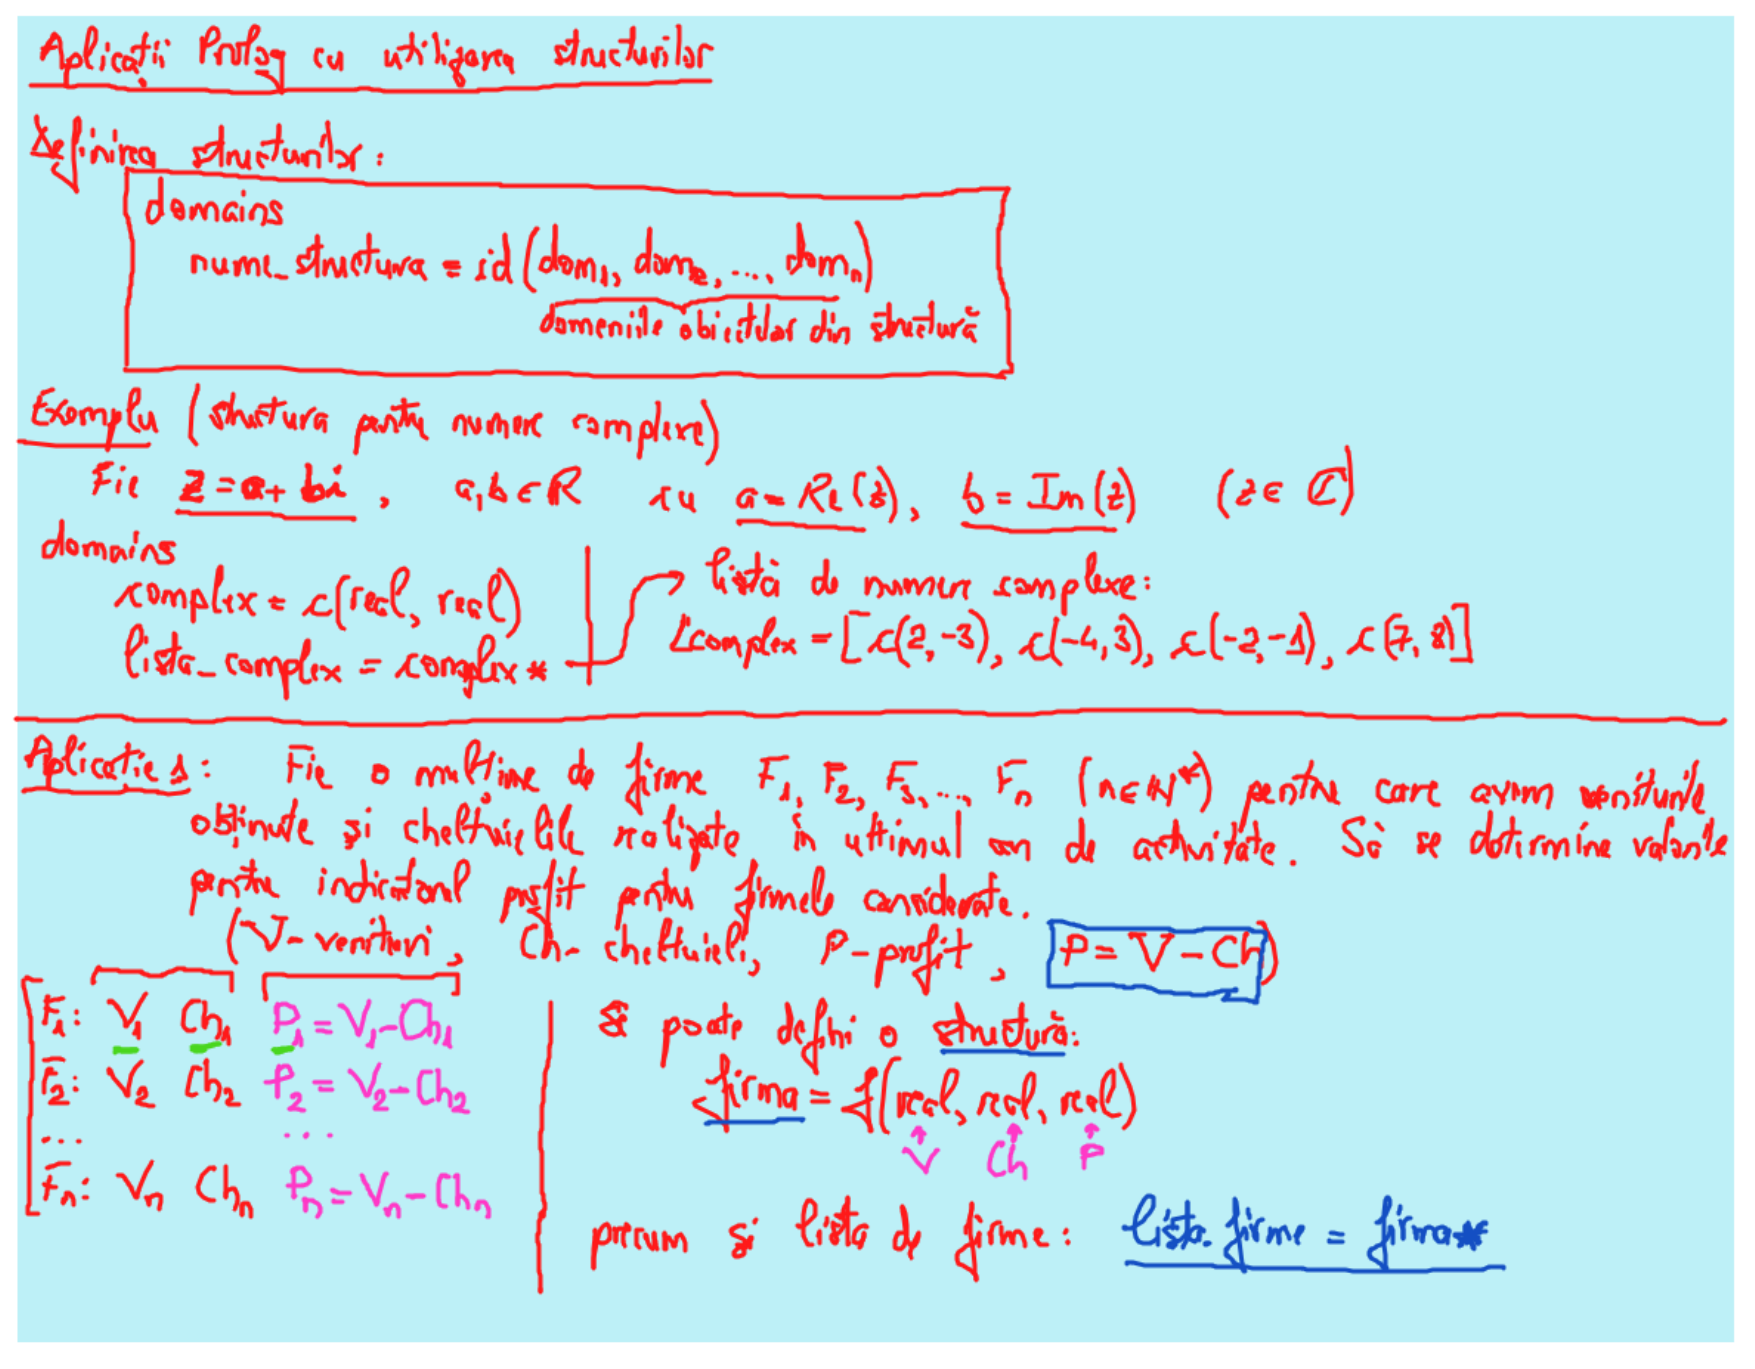 Aplicații Prolog cu utilizarea structurilor
Definirea structurilor:
domains
nume_structura = id(dom1, dom2, ..., domn)
domeniile obiectelor din structură
Exemplu (structura pentru numere complexe)
Fie z = a + bi, a,b ∈ R cu a = Re(z), b = Im(z) (z ∈ C)
domains
complex = c(real, real)
lista_complex = complex*
listă de numere complexe:
Lcomplex = [c(2,-3), c(-4,3), c(-2,-1), c(7,8)]
Aplicatie 1: Fie o mulțime de firme F1, F2, F3, ..., Fn (n ∈ N*) pentru care avem veniturile
obținute și cheltuielile realizate în ultimul an de activitate. Să se determine valorile
pentru indicatorul profit pentru firmele considerate.
(V - venituri, Ch - cheltuieli, P - profit, P = V - Ch)
F1: V1 Ch1 P1 = V1 - Ch1
F2: V2 Ch2 P2 = V2 - Ch2
... ...
Fn: Vn Chn Pn = Vn - Chn
Se poate defini o structură:
firma = f(real, real, real)
V Ch P
precum și lista de firme: lista_firme = firma*